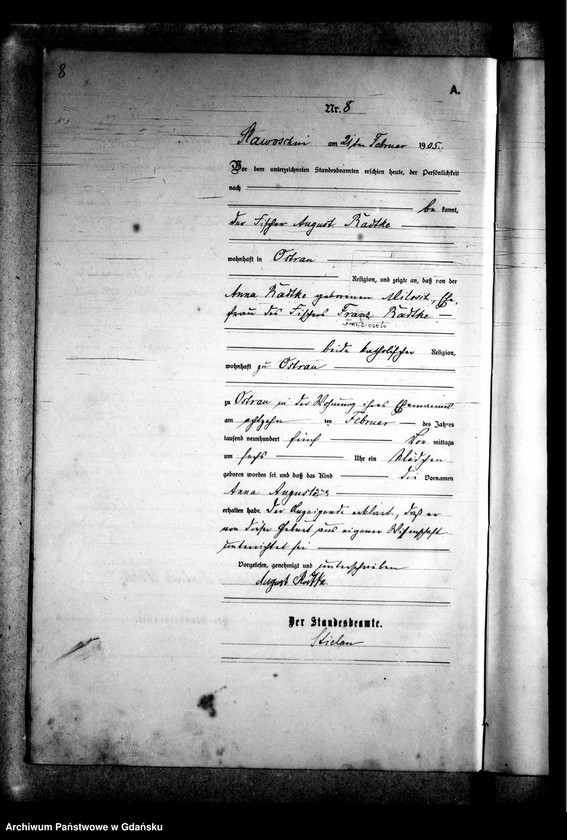 8
A.
Nr. 8
Slawoschin am 21ten Februar 1905.
Vor dem unterzeichneten Standesbeamten erschien heute, der Persönlichkeit
nach
be kannt,
der Fischer August Radtke
wohnhaft in Ostrau
Religion, und zeigte an, daß von der
Anna Radtke geborenen Milosch, Ehe-
frau des Fischers Franz Radtke
beide katholischer Religion,
wohnhaft zu Ostrau
zu Ostrau in der Wohnung ihres Ehemannes
am achtzehn ten Februar des Jahres
tausend neunhundert fünf Vor mittags
um sechs Uhr ein Mädchen
geboren worden sei und daß das Kind die Vornamen
Anna
erhalten habe. Der Anzeigende erklärt, daß er
von dieser Geburt aus eigener Wissenschaft
unterrichtet sei
Vorgelesen, genehmigt und unterschrieben
August Radtke
Der Standesbeamte.
Archiwum Państwowe w Gdańsku